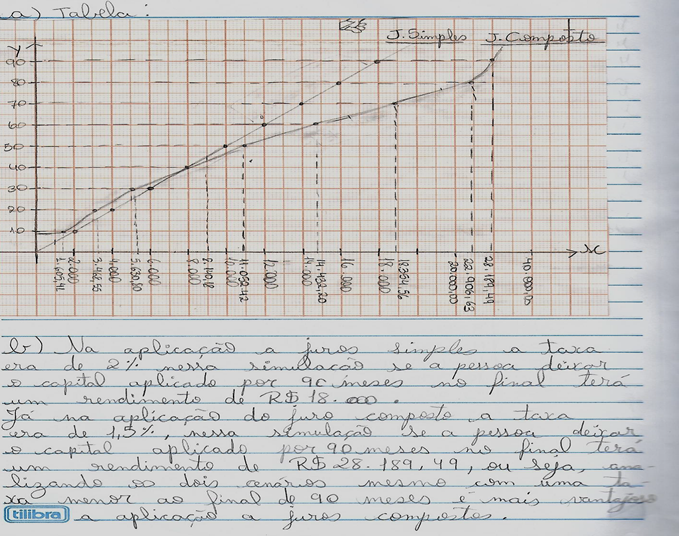 a) Tabela:
J. Simples J. Composto
y
90
80
70
60
50
40
30
20
10
x
2.000
4.000
6.000
8.000
10.000
11.052,42
12.000
14.000
16.000
18.000
18.354,56
20.000,00
22.906,63
28.189,49
40.000,00
b) Na aplicação a juros simples a taxa
era de 2% nessa simulação se a pessoa deixar
o capital aplicado por 90 meses no final terá
um rendimento de R$ 18.000.
Já na aplicação do juro composto a taxa
era de 1,5%, nessa simulação se a pessoa deixar
o capital aplicado por 90 meses no final terá
um rendimento de R$ 28.189,49, ou seja, ana-
lizando os dois cenários mesmo com uma ta-
xa menor ao final de 90 meses é mais vantajoso
tilibra a aplicação a juros compostos.